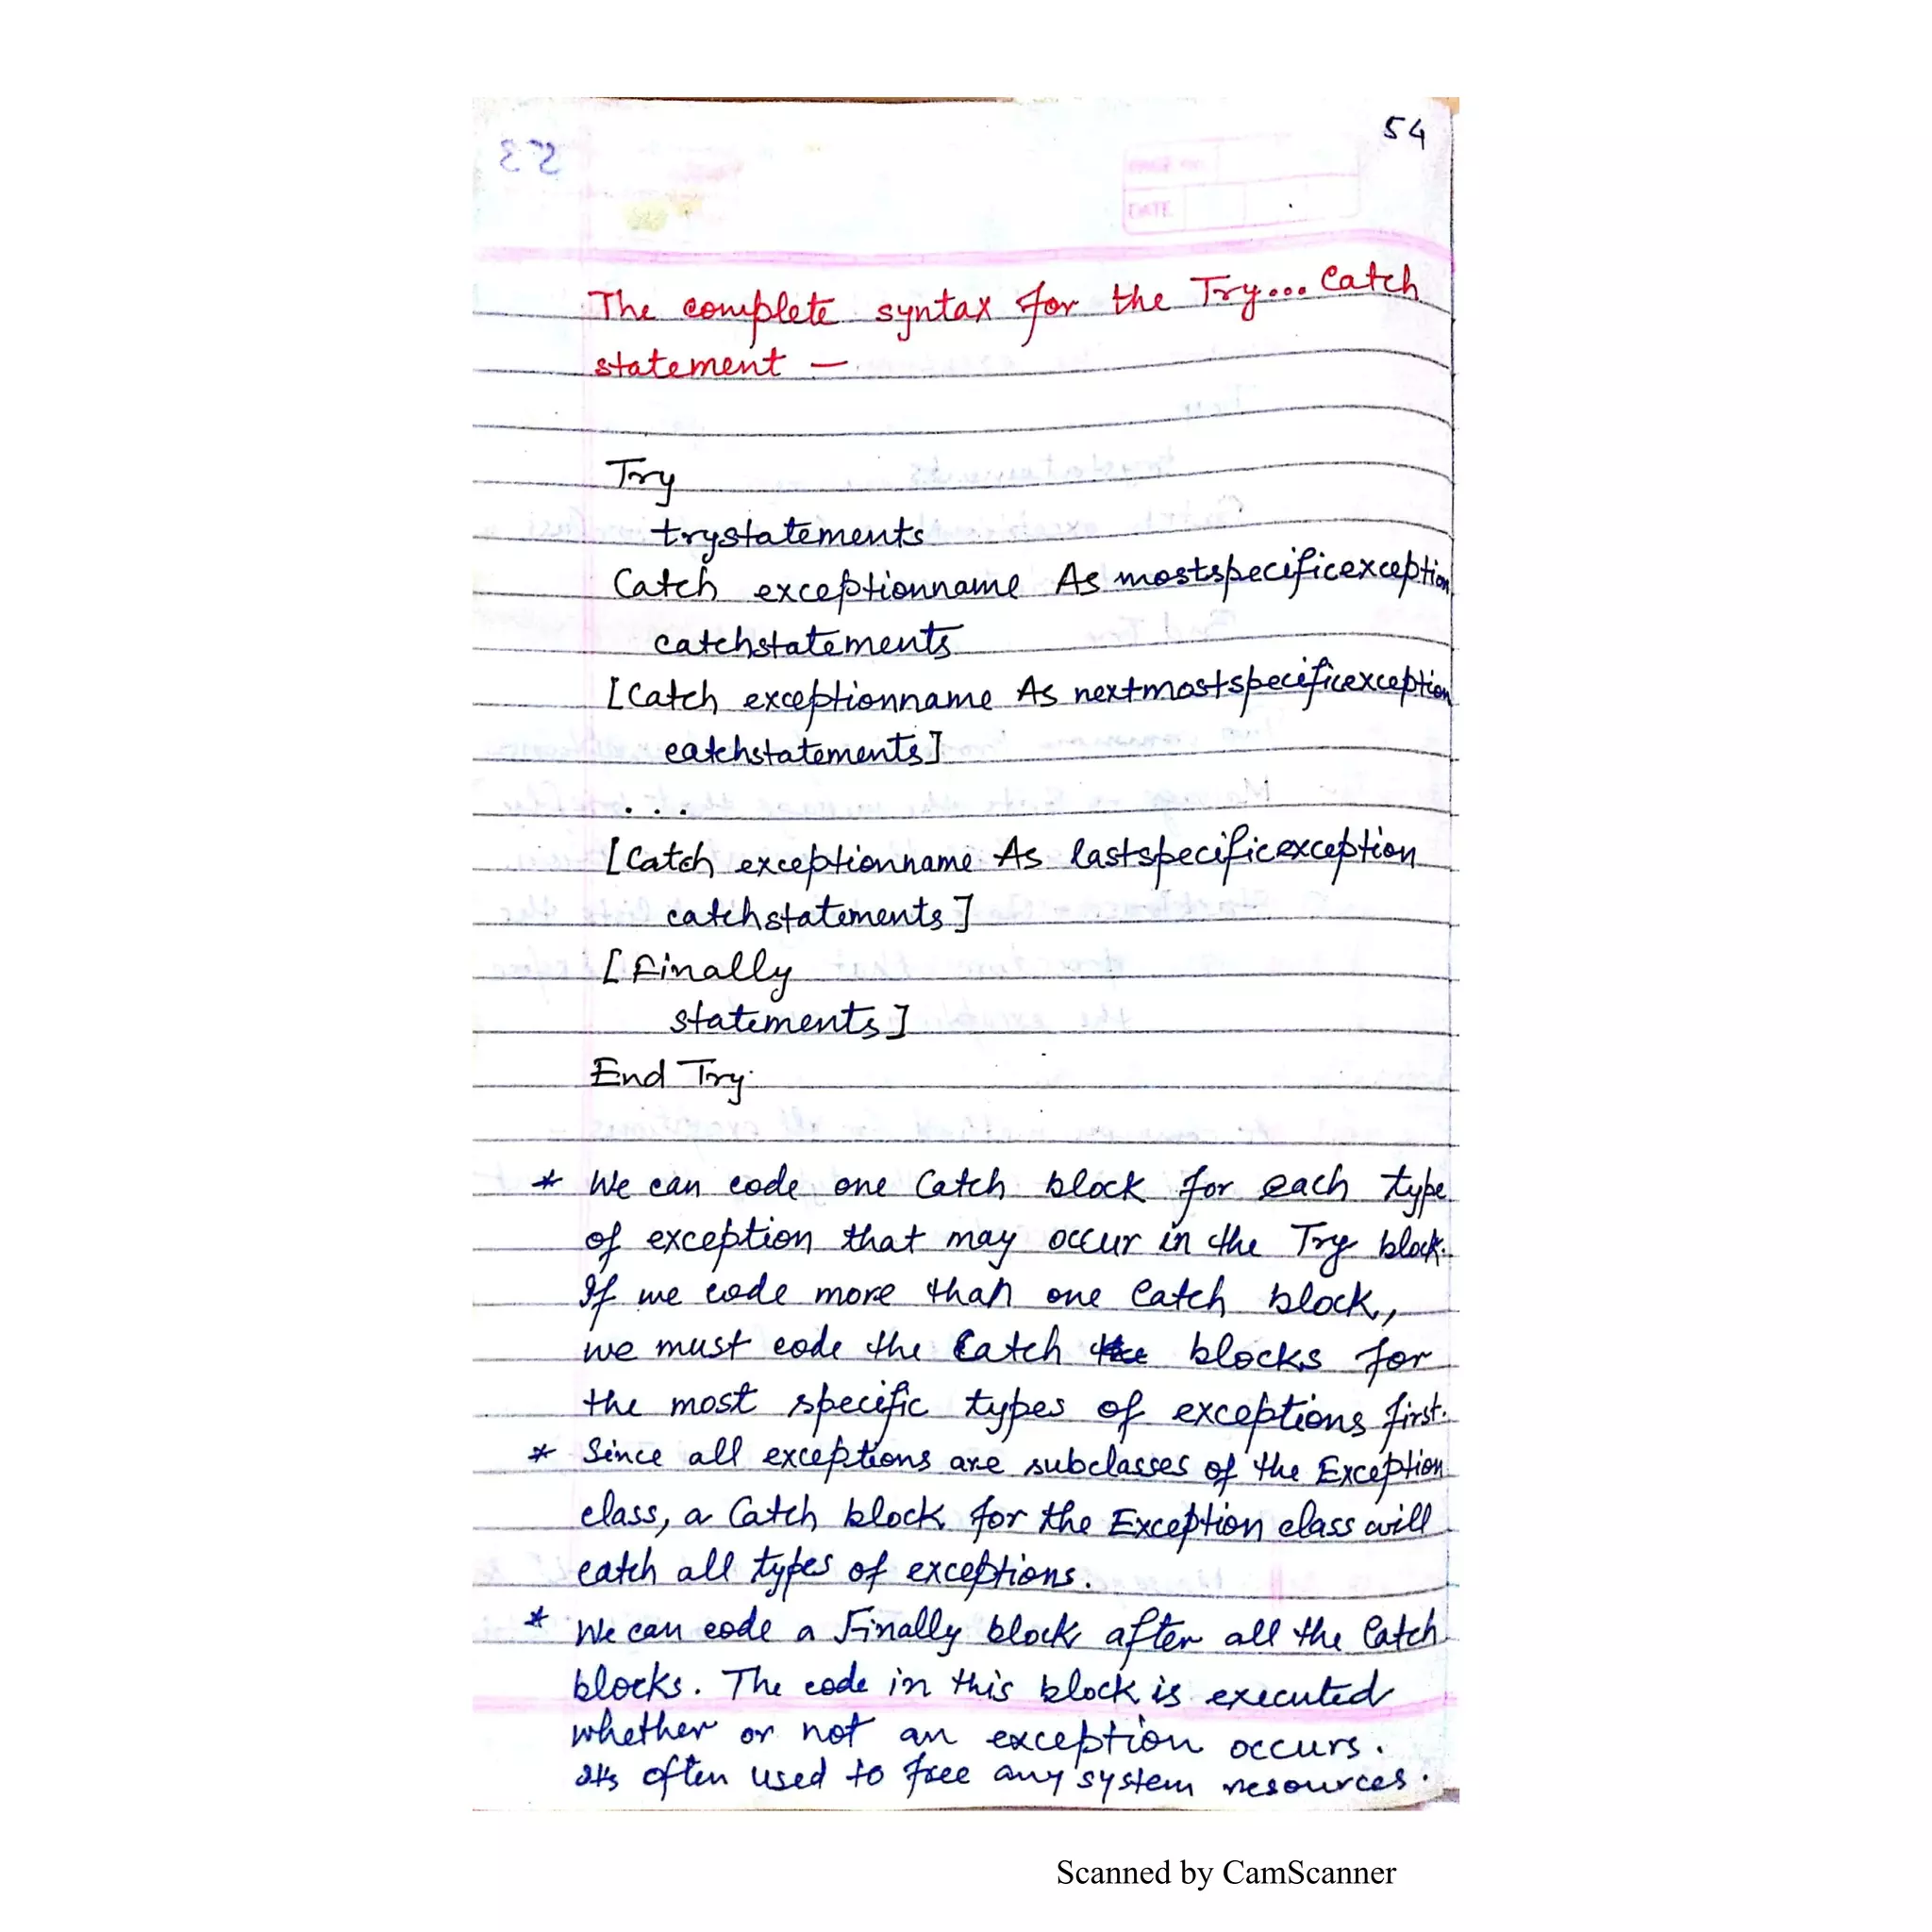 54
53
PAGE No.
DATE
The complete syntax for the Try... Catch
statement —
Try
trystatements
Catch exceptionname As mostspecificexception
catchstatements
[Catch exceptionname As nextmostspecificexception
catchstatements]
. . .
[Catch exceptionname As lastspecificexception
catchstatements]
[Finally
statements]
End Try
* We can code one Catch block for each type
of exception that may occur in the Try block.
If we code more than one Catch block,
we must code the Catch blocks for
the most specific types of exceptions first.
* Since all exceptions are subclasses of the Exception
class, a Catch block for the Exception class will
catch all types of exceptions.
* We can code a Finally block after all the Catch
blocks. The code in this block is executed
whether or not an exception occurs.
It's often used to free any system resources.
Scanned by CamScanner